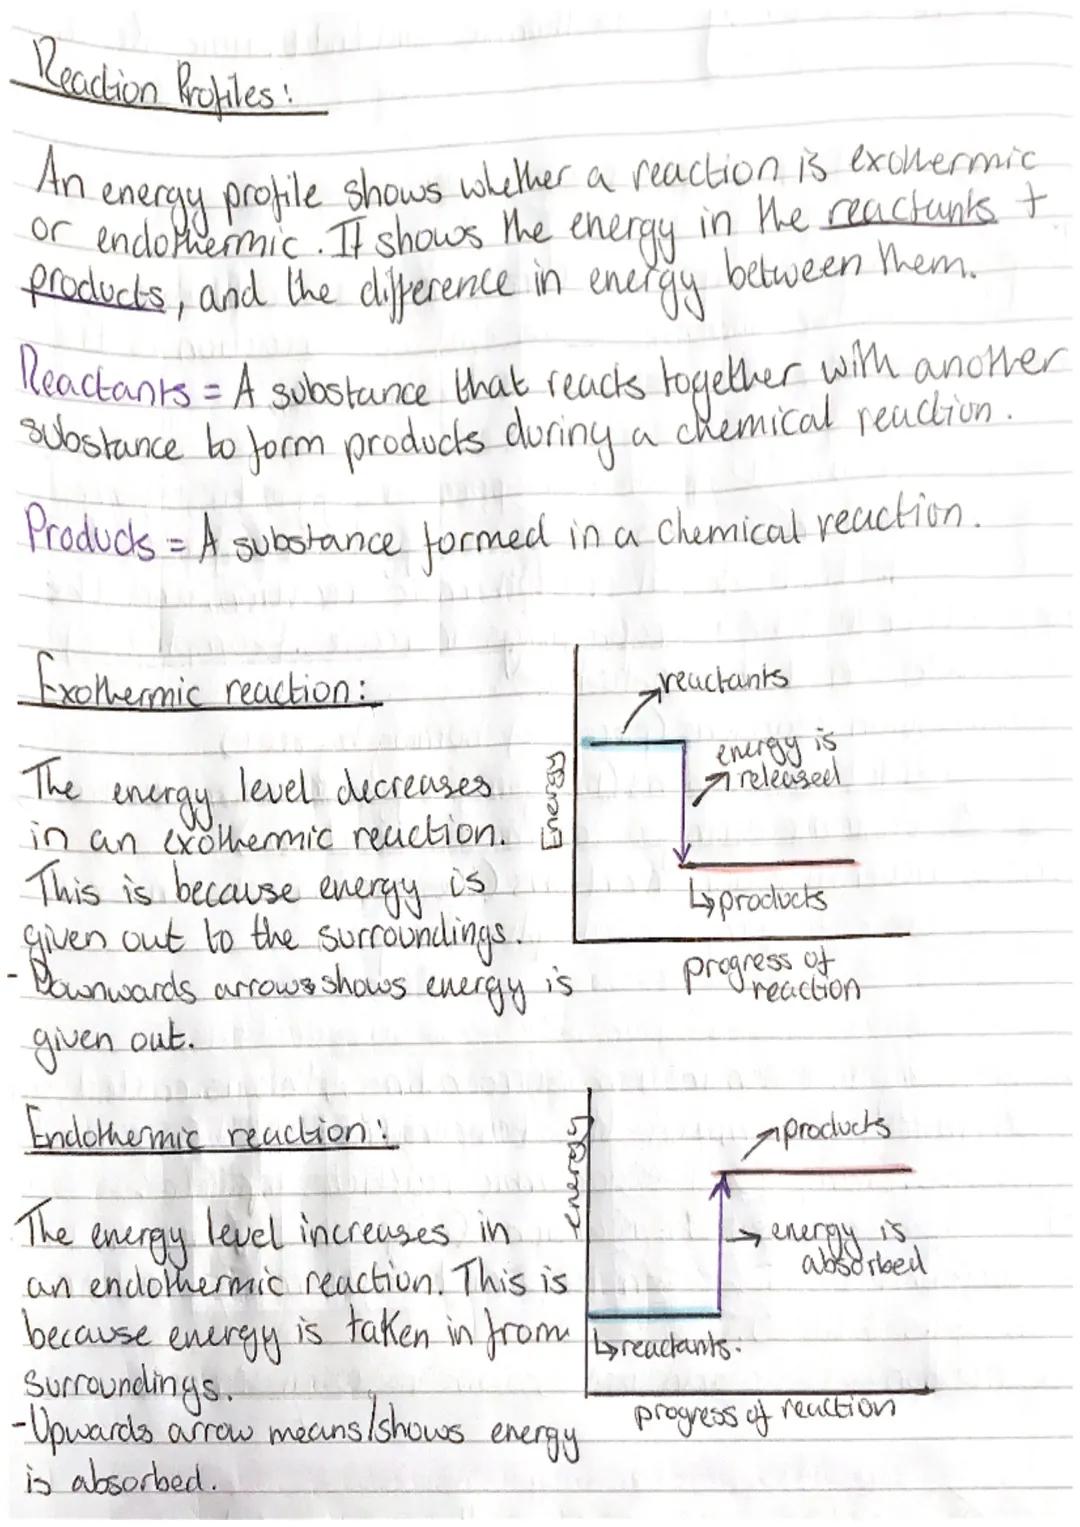 Reaction Profiles:
An energy profile shows whether a reaction is exothermic
or endothermic. It shows the energy in the reactants +
products, and the difference in energy between them.
Reactants = A substance that reacts together with another
substance to form products during a chemical reaction.
Products = A substance formed in a chemical reaction.
Exothermic reaction:
The energy level decreases
in an exothermic reaction.
This is because energy is
given out to the surroundings.
- Downwards arrows shows energy is
given out.
Energy
reactants
energy is
released
products
progress of
reaction
Endothermic reaction:
The energy level increases in
an endothermic reaction. This is
because energy is taken in from
surroundings.
- Upwards arrow means/shows energy
is absorbed.
energy
products
energy is
absorbed
reactants.
progress of reaction